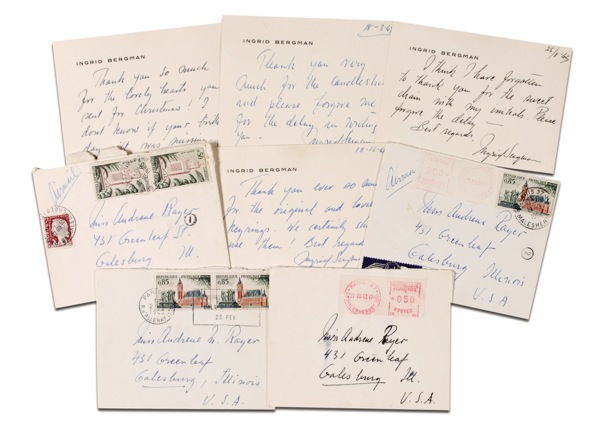 INGRID BERGMAN
Thank you so much
for the lovely hearts you
sent for Christmas! I
dont know if your birth
day was
INGRID BERGMAN
Thank you very
much for the candlesticks
and please forgive me
for the delay in writing
you.
INGRID BERGMAN
I think I have forgotten
to thank you for the sweet
chain with my initials. Please
forgive the delay
Best regards.
Ingrid Bergman
INGRID BERGMAN
Thank you ever so
for the original and
keyrings. We certainly
use them! Best regards
Ingrid Bergman
Miss Andrene Rayer
431 Greenleaf St.
Galesburg
Ill.
1
0,85
Miss Andrene Rayer
431 Greenleaf
Galesburg Illinois
U.S.A
2
0,85
0,85
PARIS
23 FEV
Miss Andrene M Rayer
431 Greenleaf
Galesburg, Illinois
U.S.A.
050
Miss Andrene Rayer
431 Greenleaf
Galesburg Ill.
U.S.A.